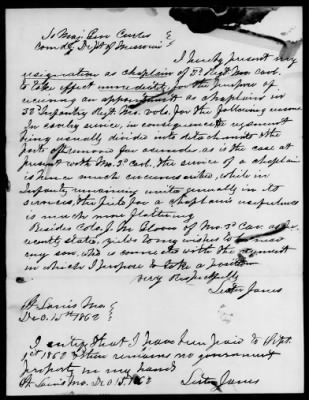 To Maj. Gen Curtis
Comdg Dept of Missouri
I hereby present my
resignation as chaplain of 3d Regt Mo. Cav.
to take effect immediately, for the purpose of
receiving an appointment as chaplain in
33d Infantry Regt Mo. Vols. for the following reasons
In cavalry service, in consequence regiment
being usually divided into detachments &
posts often removed far asunder, as is the case at
present with Mo. 3d Cavl. the service of a chaplain
is under much circumscribed, while in
Infantry remaining united generally in its
services, the field for a chaplain's usefulness
is much more flattering
Besides Col. J. M. Glover of Mo. 3d Cav. as
recently stated, yields to my wishes to be near
my son, who is connected with the regiment
in which I propose to take a position
very Respectfully
Jones
St. Louis Mo.
Dec. 15th 1862
I certify that I have been paid to Sept.
1st 1862 & there remains no government
property in my hands
St. Louis Mo. Dec 15. 1862
Jones